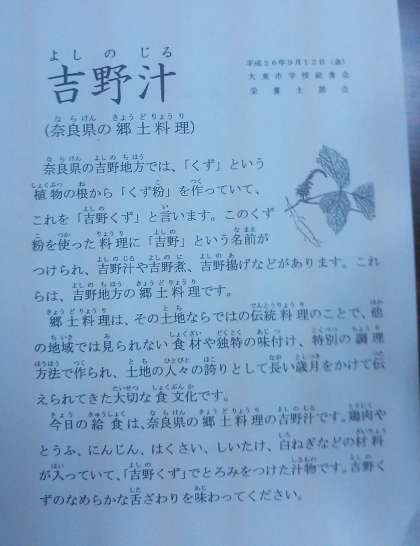 よしのじる
吉野汁
平成26年9月12日(金)
大東市学校給食会
栄養士部会
(奈良県の郷土料理)
奈良県の吉野地方では、「くず」という
植物の根から「くず粉」を作っていて、
これを「吉野くず」と言います。このくず
粉を使った料理に「吉野」という名前が
つけられ、吉野汁や吉野煮、吉野揚げなどがあります。これ
らは、吉野地方の郷土料理です。
郷土料理は、その土地ならではの伝統料理のことで、他
の地域では見られない食材や独特の味付け、特別の調理
方法で作られ、土地の人々の誇りとして長い歳月をかけて伝
えられてきた大切な食文化です。
今日の給食は、奈良県の郷土料理の吉野汁です。鶏肉や
とうふ、にんじん、はくさい、しいたけ、白ねぎなどの材料
が入っていて、「吉野くず」でとろみをつけた汁物です。吉野く
ずのなめらかな舌ざわりを味わってください。